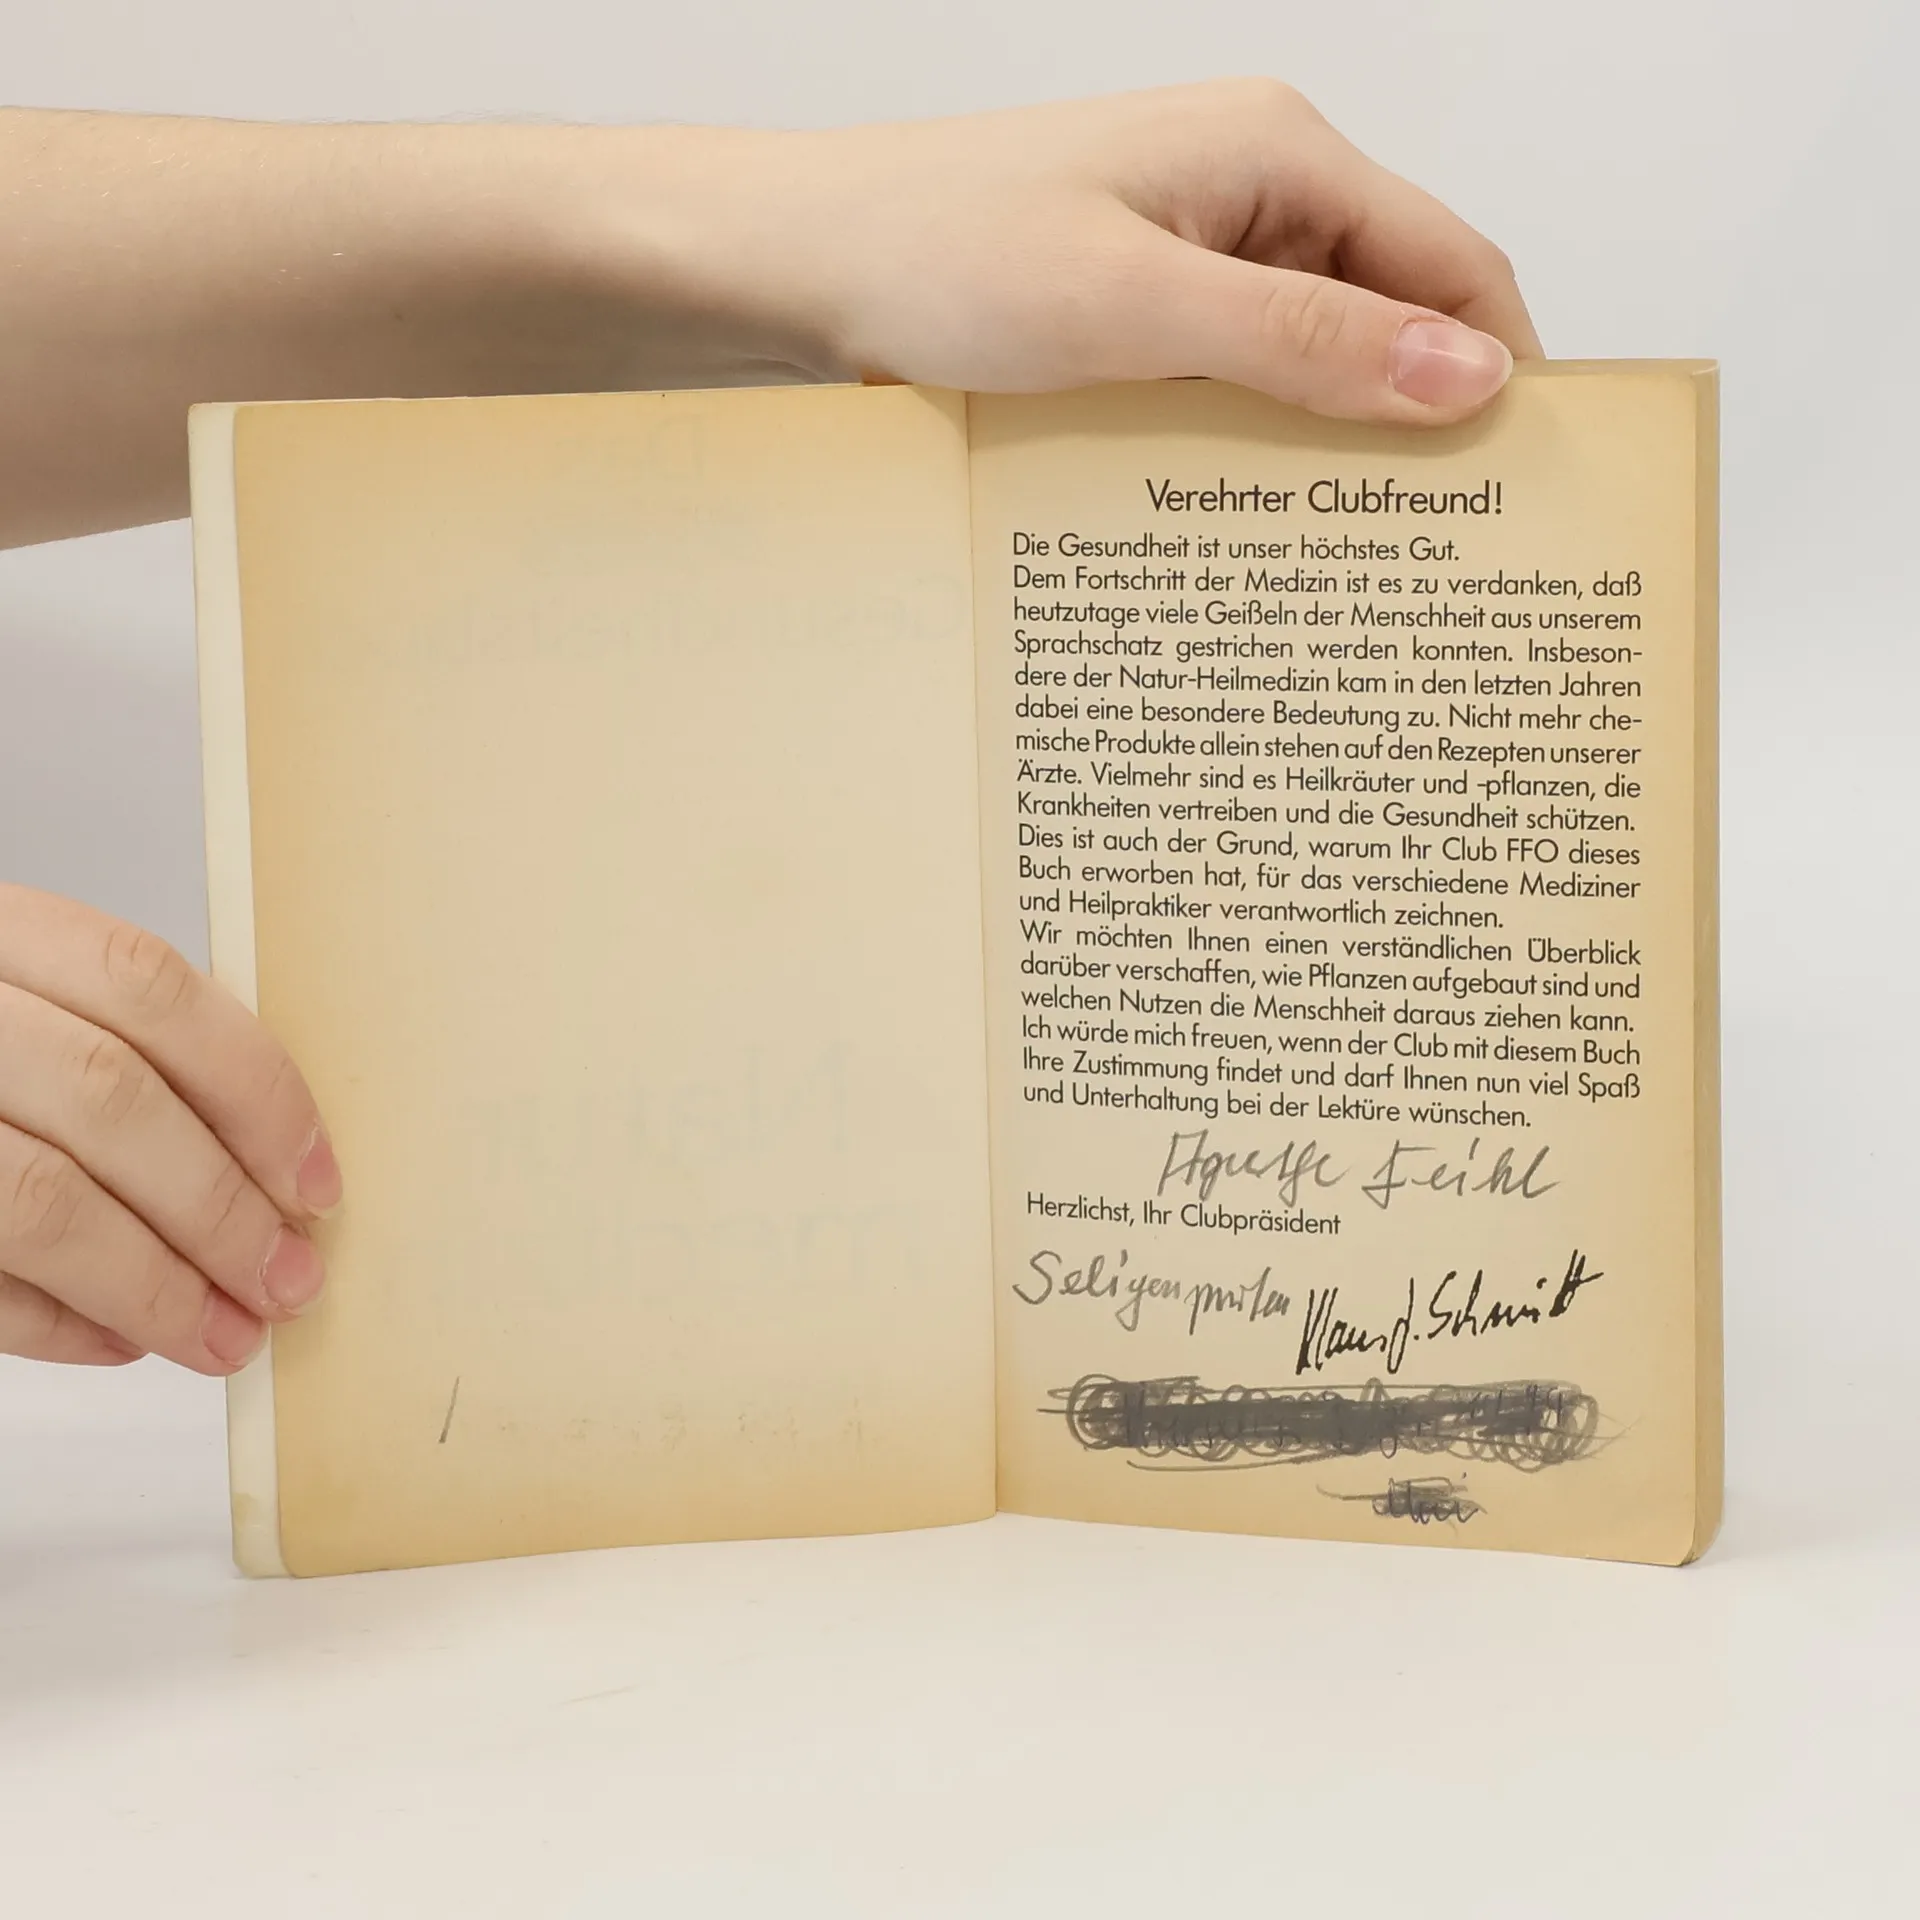 Verehrter Clubfreund!
Die Gesundheit ist unser höchstes Gut.
Dem Fortschritt der Medizin ist es zu verdanken, daß
heutzutage viele Geißeln der Menschheit aus unserem
Sprachschatz gestrichen werden konnten. Insbeson-
dere der Natur-Heilmedizin kam in den letzten Jahren
dabei eine besondere Bedeutung zu. Nicht mehr che-
mische Produkte allein stehen auf den Rezepten unserer
Ärzte. Vielmehr sind es Heilkräuter und -pflanzen, die
Krankheiten vertreiben und die Gesundheit schützen.
Dies ist auch der Grund, warum Ihr Club FFO dieses
Buch erworben hat, für das verschiedene Mediziner
und Heilpraktiker verantwortlich zeichnen.
Wir möchten Ihnen einen verständlichen Überblick
darüber verschaffen, wie Pflanzen aufgebaut sind und
welchen Nutzen die Menschheit daraus ziehen kann.
Ich würde mich freuen, wenn der Club mit diesem Buch
Ihre Zustimmung findet und darf Ihnen nun viel Spaß
und Unterhaltung bei der Lektüre wünschen.
Herzlichst, Ihr Clubpräsident
Schmitt